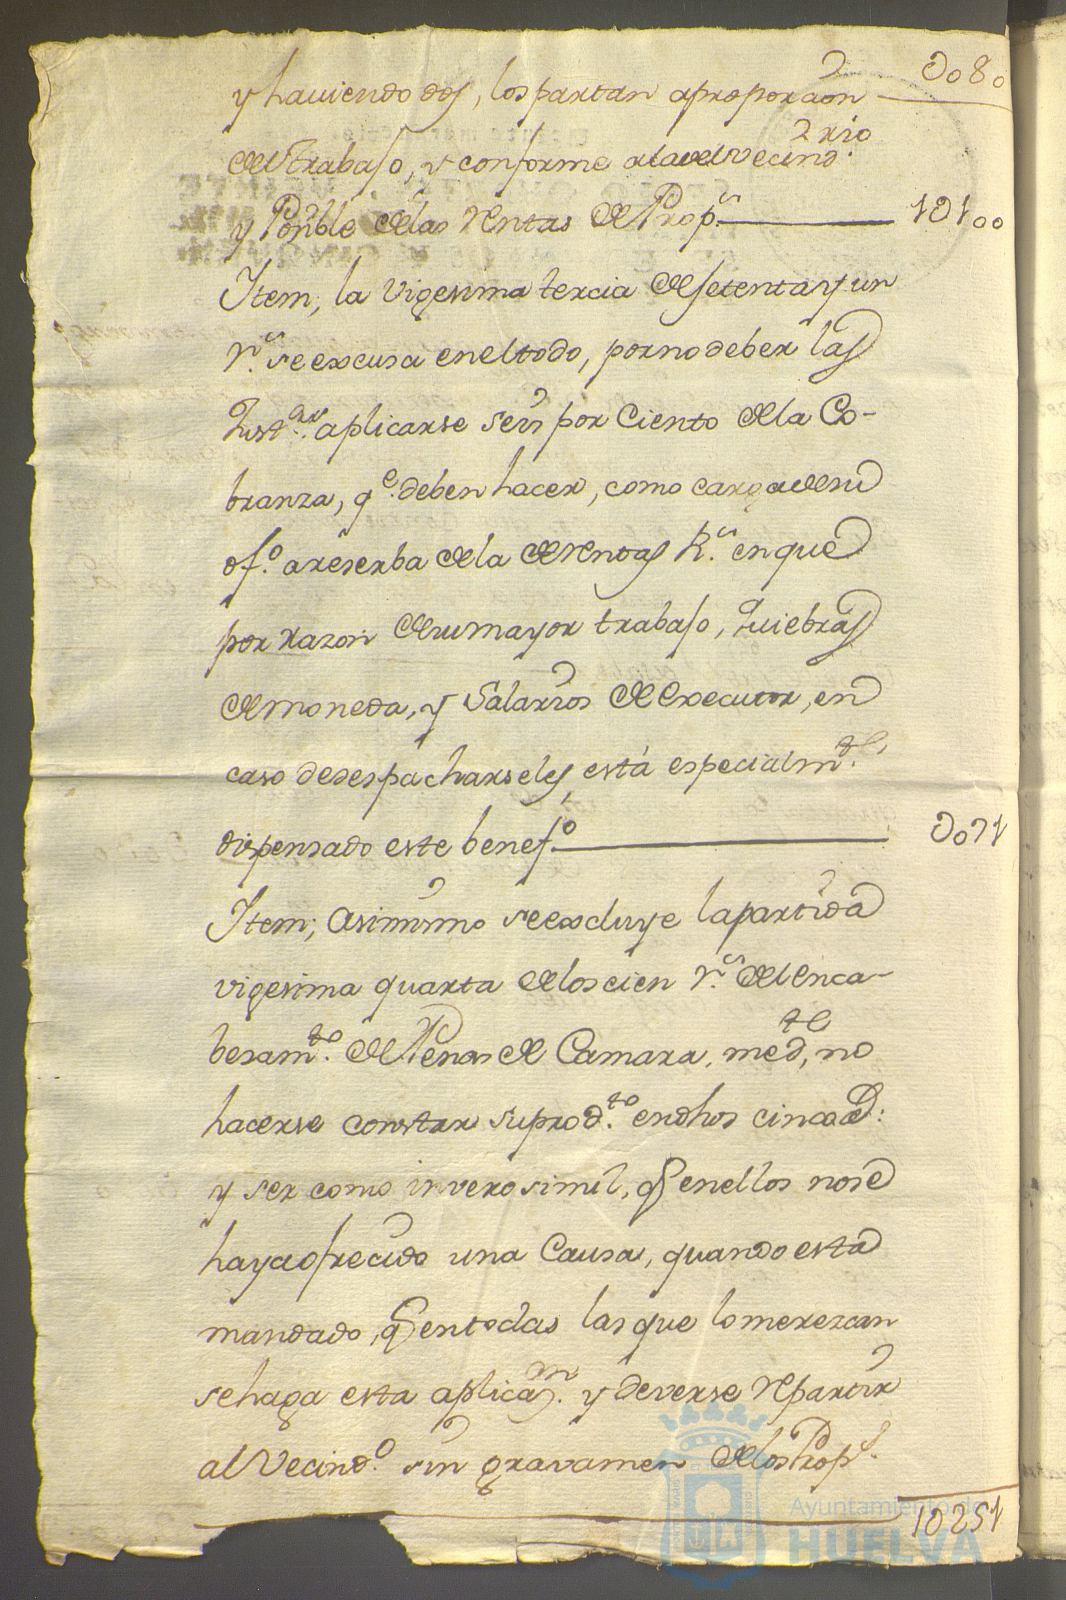 y haviendo dos, los partan a proporcion
del trabajo, y conforme a la del vecind.rio
y Poñble de las rentas de Prop.s
Item, la vigesima tercia de setenta y un
r.s se excusa en el todo, por no deber las
Just.as aplicarse seis por Ciento de la Co-
branza, q.e deben hacer, como carga de su
of.o a reserba de la de rentas R.s en que
por razon de su mayor trabajo, Quiebras
de moneda, y Salarios de executor, en
caso de despacharseles, está especialm.te
dispensado este benef.o
Item; Asimismo se excluye la partida
vigesima quarta de los cien r.s del enca-
besam.to de Penas de Camara, med.te, no
hacerse constar su prod.to en dhos cinco
y ser como inverosimil, q en ellos no se
haya ofrecido una Causa, quando esta
mandado, q en todas las que lo merezcan
se haga esta aplicac.n y deverse repartir
al Vecind.o sin gravamen de los Prop.s
D080
1D100
D071
1D251
Ayuntamiento de
HUELVA